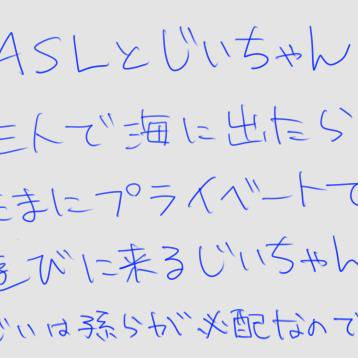 ASLとじいちゃん
三人で海に出たら
たまにプライベートで
遊びに来るじいちゃん
じいは孫らが心配なので